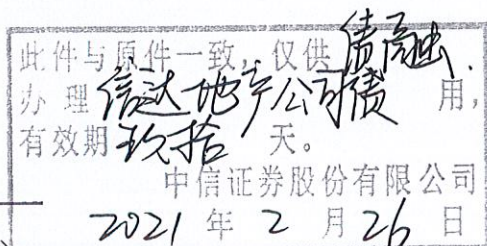 此件与原件一致,仅供债融出
办理信达地产公司债用,
有效期玖拾天。
中信证券股份有限公司
2021年2月26日